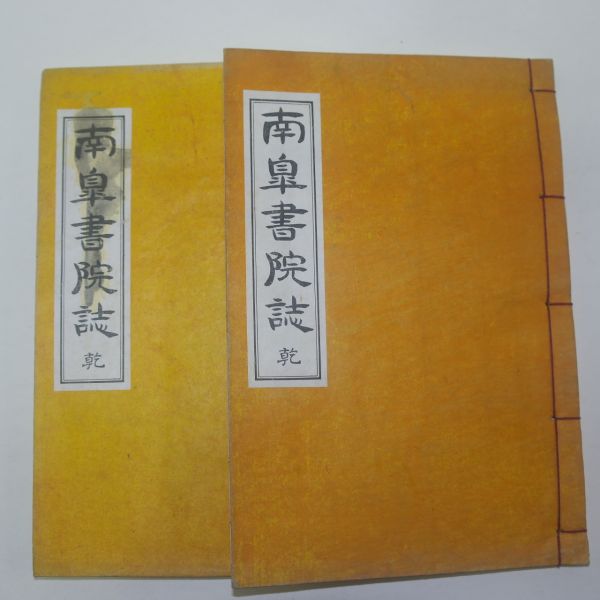 南皐書院誌 乾
南皐書院誌 乾